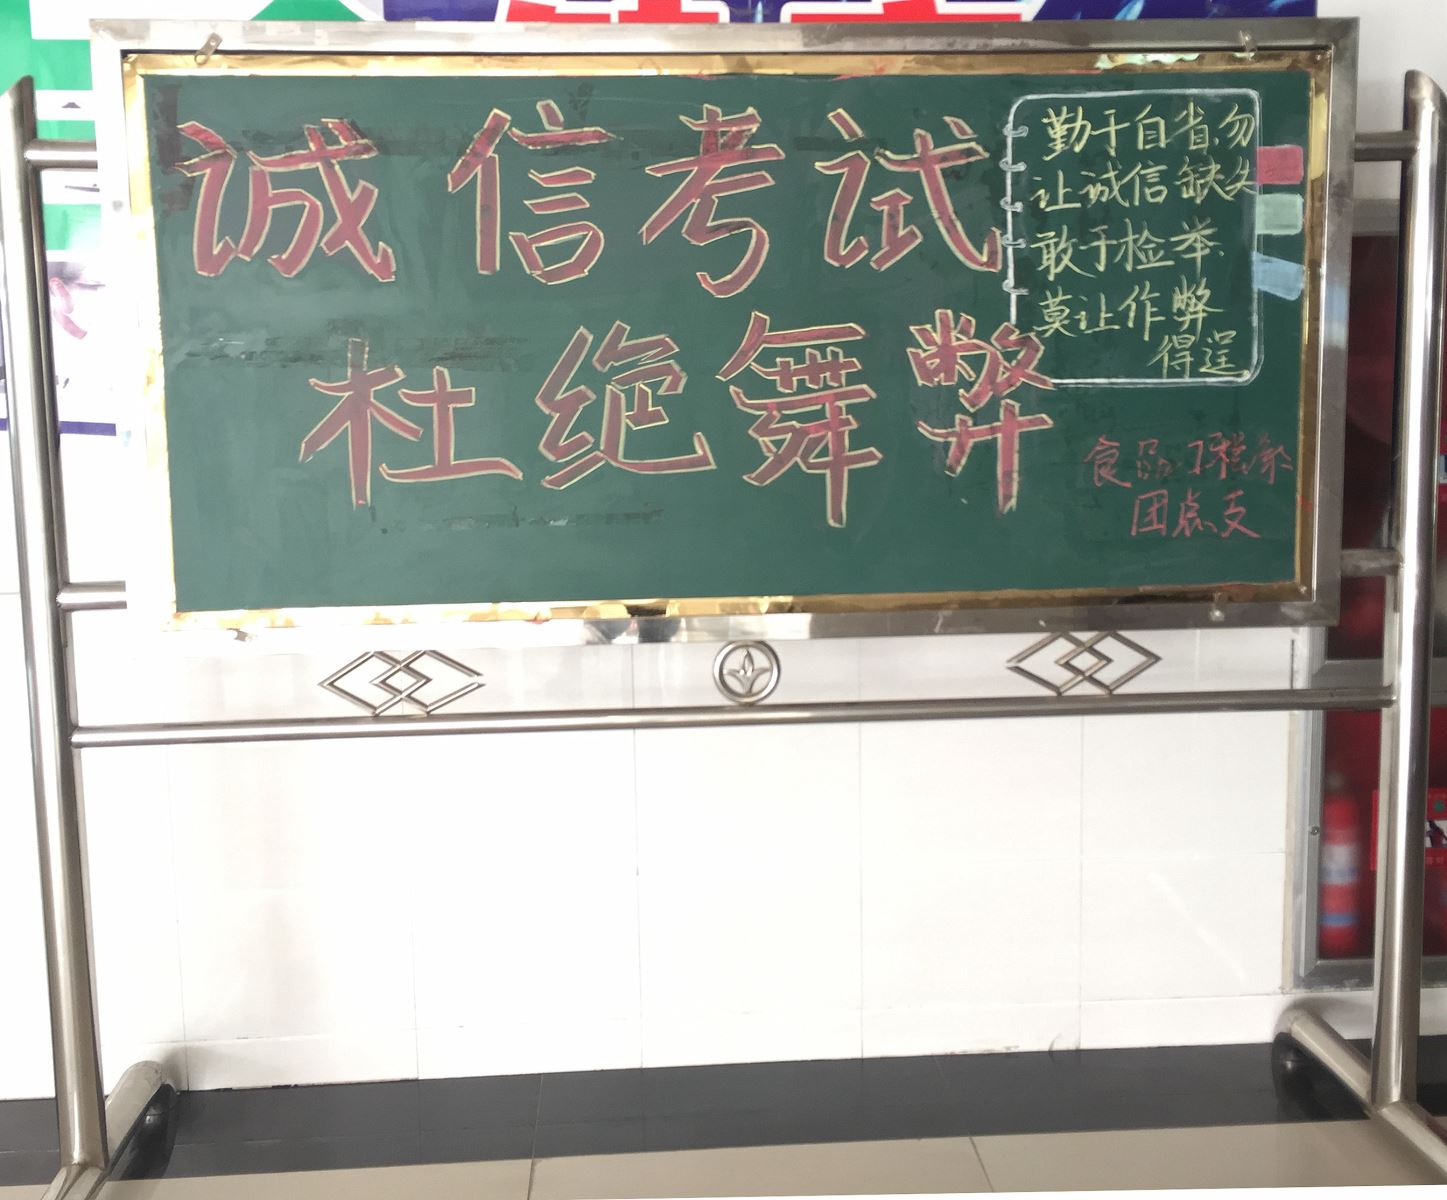 诚信考试
杜绝舞弊
勤于自省,勿
让诚信缺失
敢于检举,
莫让作弊
得逞
食品工程系
团总支